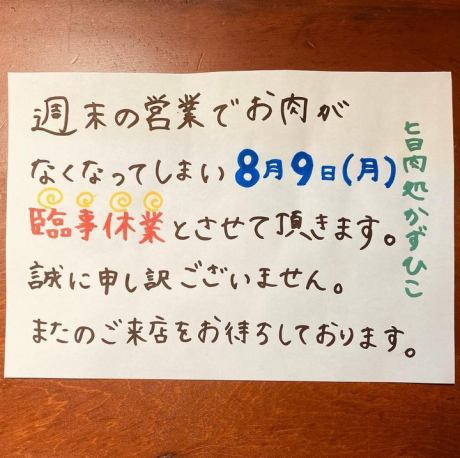 週末の営業でお肉が
なくなってしまい8月9日(月)
臨事休業とさせて頂きます。
誠に申し訳ございません。
またのご来店をお待ちしております。
旨肉処かずひこ